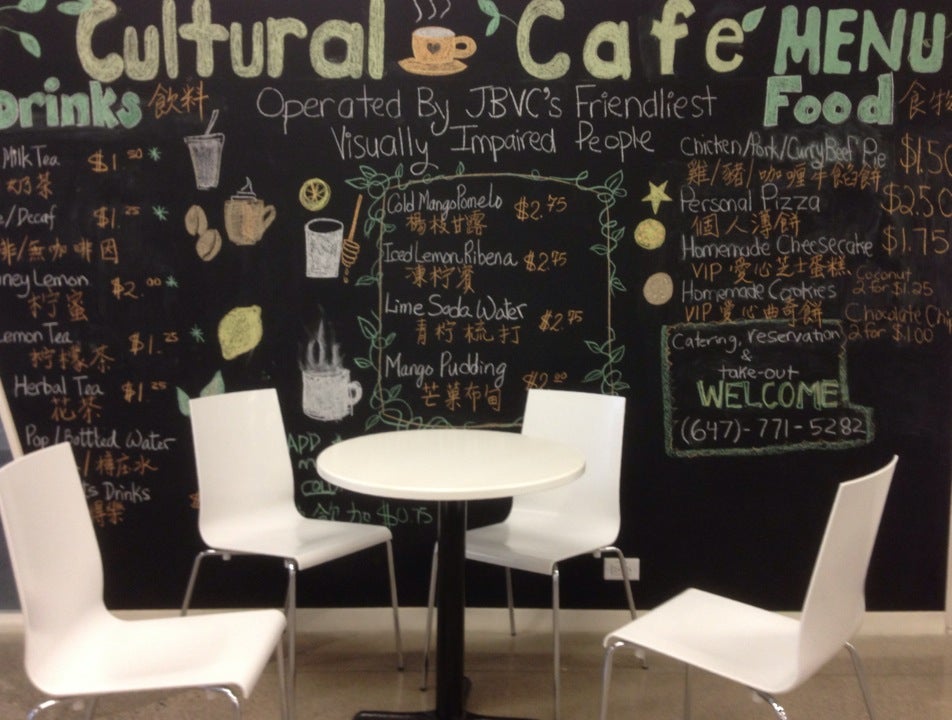 Cultural Cafe MENU
Drinks 飲料
Operated By JBVC's Friendliest
Visually Impaired People
Food 食物
Milk Tea $1.50 *
奶茶
/Decaf $1.25 *
啡/無咖啡因
Lemon $2.00 *
柠蜜
Lemon Tea $1.25 *
柠檬茶
Herbal Tea $1.25
花茶
Pop/Bottled Water
/樽庄水
Drinks
得樂
Cold Mango Pomelo $2.75
楊枝甘露
Iced Lemon Ribena $2.75
凍柠賓
Lime Soda Water $2.75
青柠梳打
Mango Pudding $2.00
芒菓布甸
ADD
飲加 $0.75
Chicken/Pork/Curry Beef Pie $1.50
雞/豬/咖喱牛餡餅
Personal Pizza $2.50
個人薄餅
Homemade Cheesecake $1.75
VIP 愛心芝士蛋糕
Homemade Cookies
VIP 愛心曲奇餅
Coconut
2 for $1.25
Chocolate
2 for $1.00
Catering, reservation
&
take-out
WELCOME
(647)-771-5282